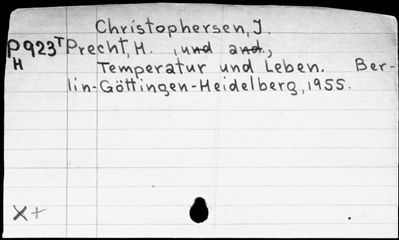 Christophersen, J.
P923T Precht, H. , und and.,
H
Temperatur und Leben. Ber-
lin-Göttingen-Heidelberg, 1955.
X+